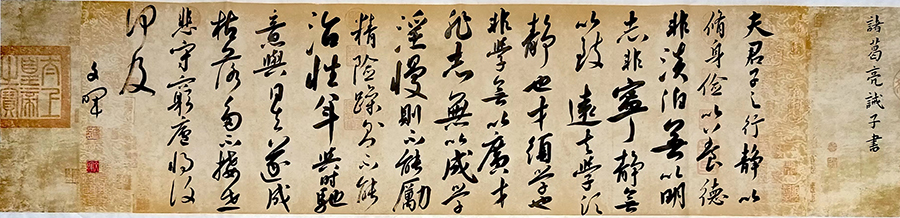 諸葛亮誡子書
夫君子之行静以
脩身儉以養德
非淡泊無以明
志非寧静無
以致遠夫學須
静也才須學也
非學無以廣才
非志無以成学
淫慢則不能勵
精险躁則不能
治性年與時馳
意與日去遂成
枯落多不接世
悲守窮廬将復
何及
文
太上
皇帝
之寶